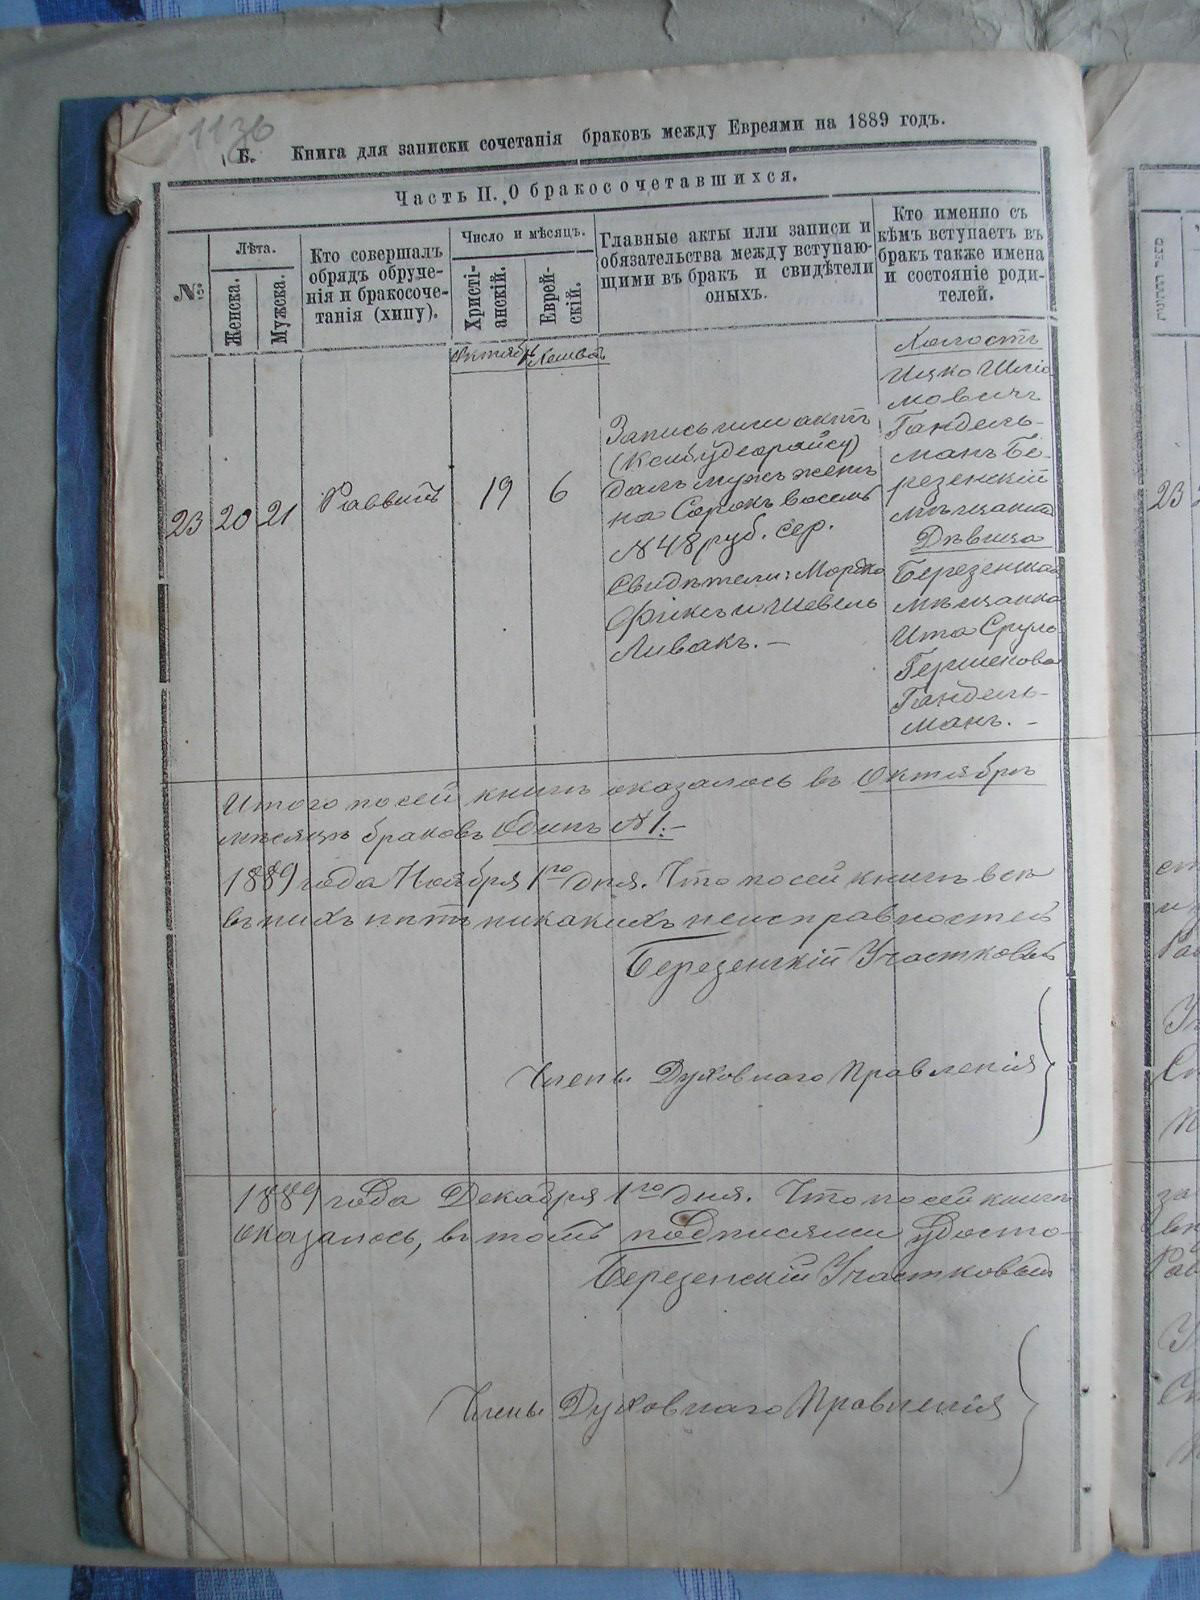 1136
Б. Книга для записки сочетанія браковъ между Евреями на 1889 годъ.
Часть II. О бракосочетавшихся.
№
Лѣта.
Женска.
Мужска.
Кто совершалъ
обрядъ обруче-
нія и бракосоче-
танія (хипу).
Число и мѣсяцъ.
Христі-
анскій.
Еврей-
скій.
Главные акты или записи и
обязательства между вступаю-
щими въ бракъ и свидѣтели
оныхъ.
Кто именно съ
кѣмъ вступаетъ въ
бракъ также имена
и состояніе роди-
телей.
Октябрь Хешванъ
23 20 21 Раввинъ 19 6
Запись или актъ
далъ мужъ женѣ
на Сорокъ восемь
№ 48 руб. сер.
Свидѣтели: Мордко
Фиксъ и Шевель
Ливакъ. —
Холостъ
Ицко Шліо
мовичъ
Гандель-
манъ Бе-
резенскій
мѣщанинъ
Дѣвица
Березенская
мѣщанка
Ита Сруль
Гершкова
Гандель-
манъ. —
Итого по сей книгѣ оказалось въ Октябрѣ
мѣсяцѣ браковъ Одинъ №1. —
1889 года Ноября 1го дня. Что по сей книгѣ всѣ
въ нихъ нѣтъ никакихъ неисправностей
Березенскій Участковый
Члены Духовнаго Правленія
1889 года Декабря 1го дня. Что по сей книгѣ
оказалось, въ томъ подписями удосто-
Березенскій Участковый
Члены Духовнаго Правленія
23